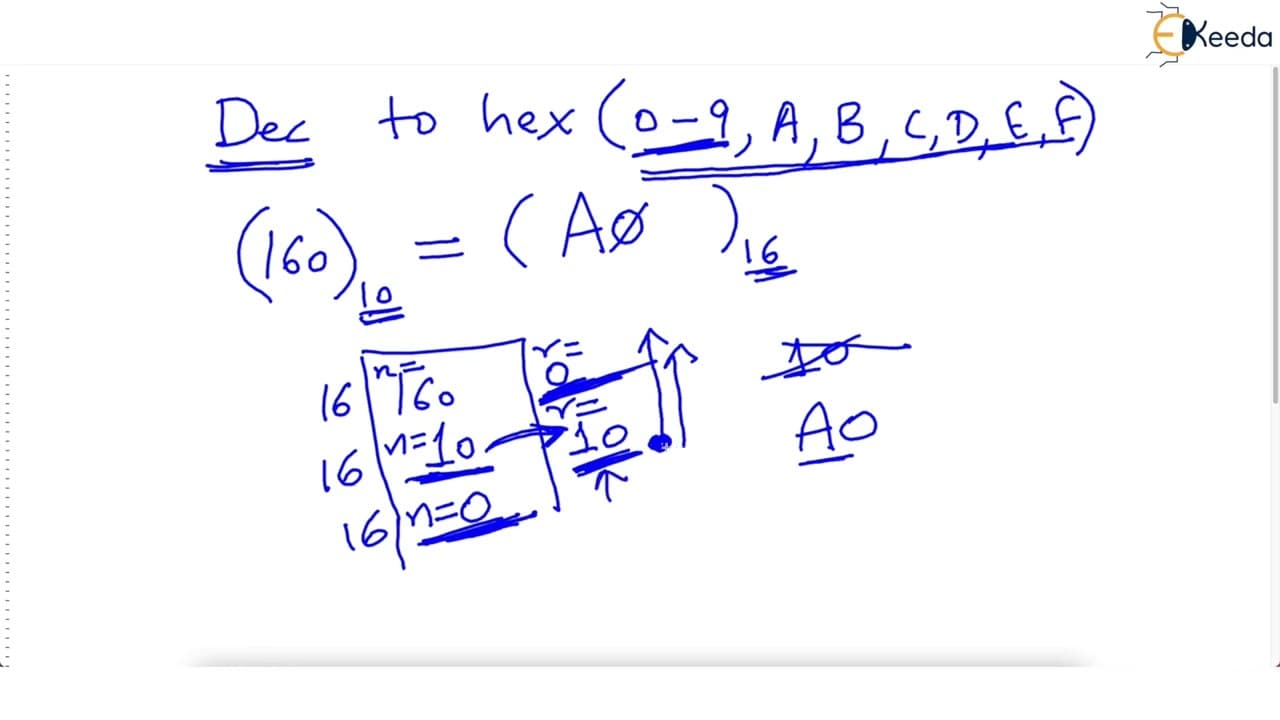 EKeeda
Dec to hex (0-9, A, B, C, D, E, F)
(160)10 = (AØ)16
16 n=160 r=0
16 n=10 r=10
16 n=0
10
A0